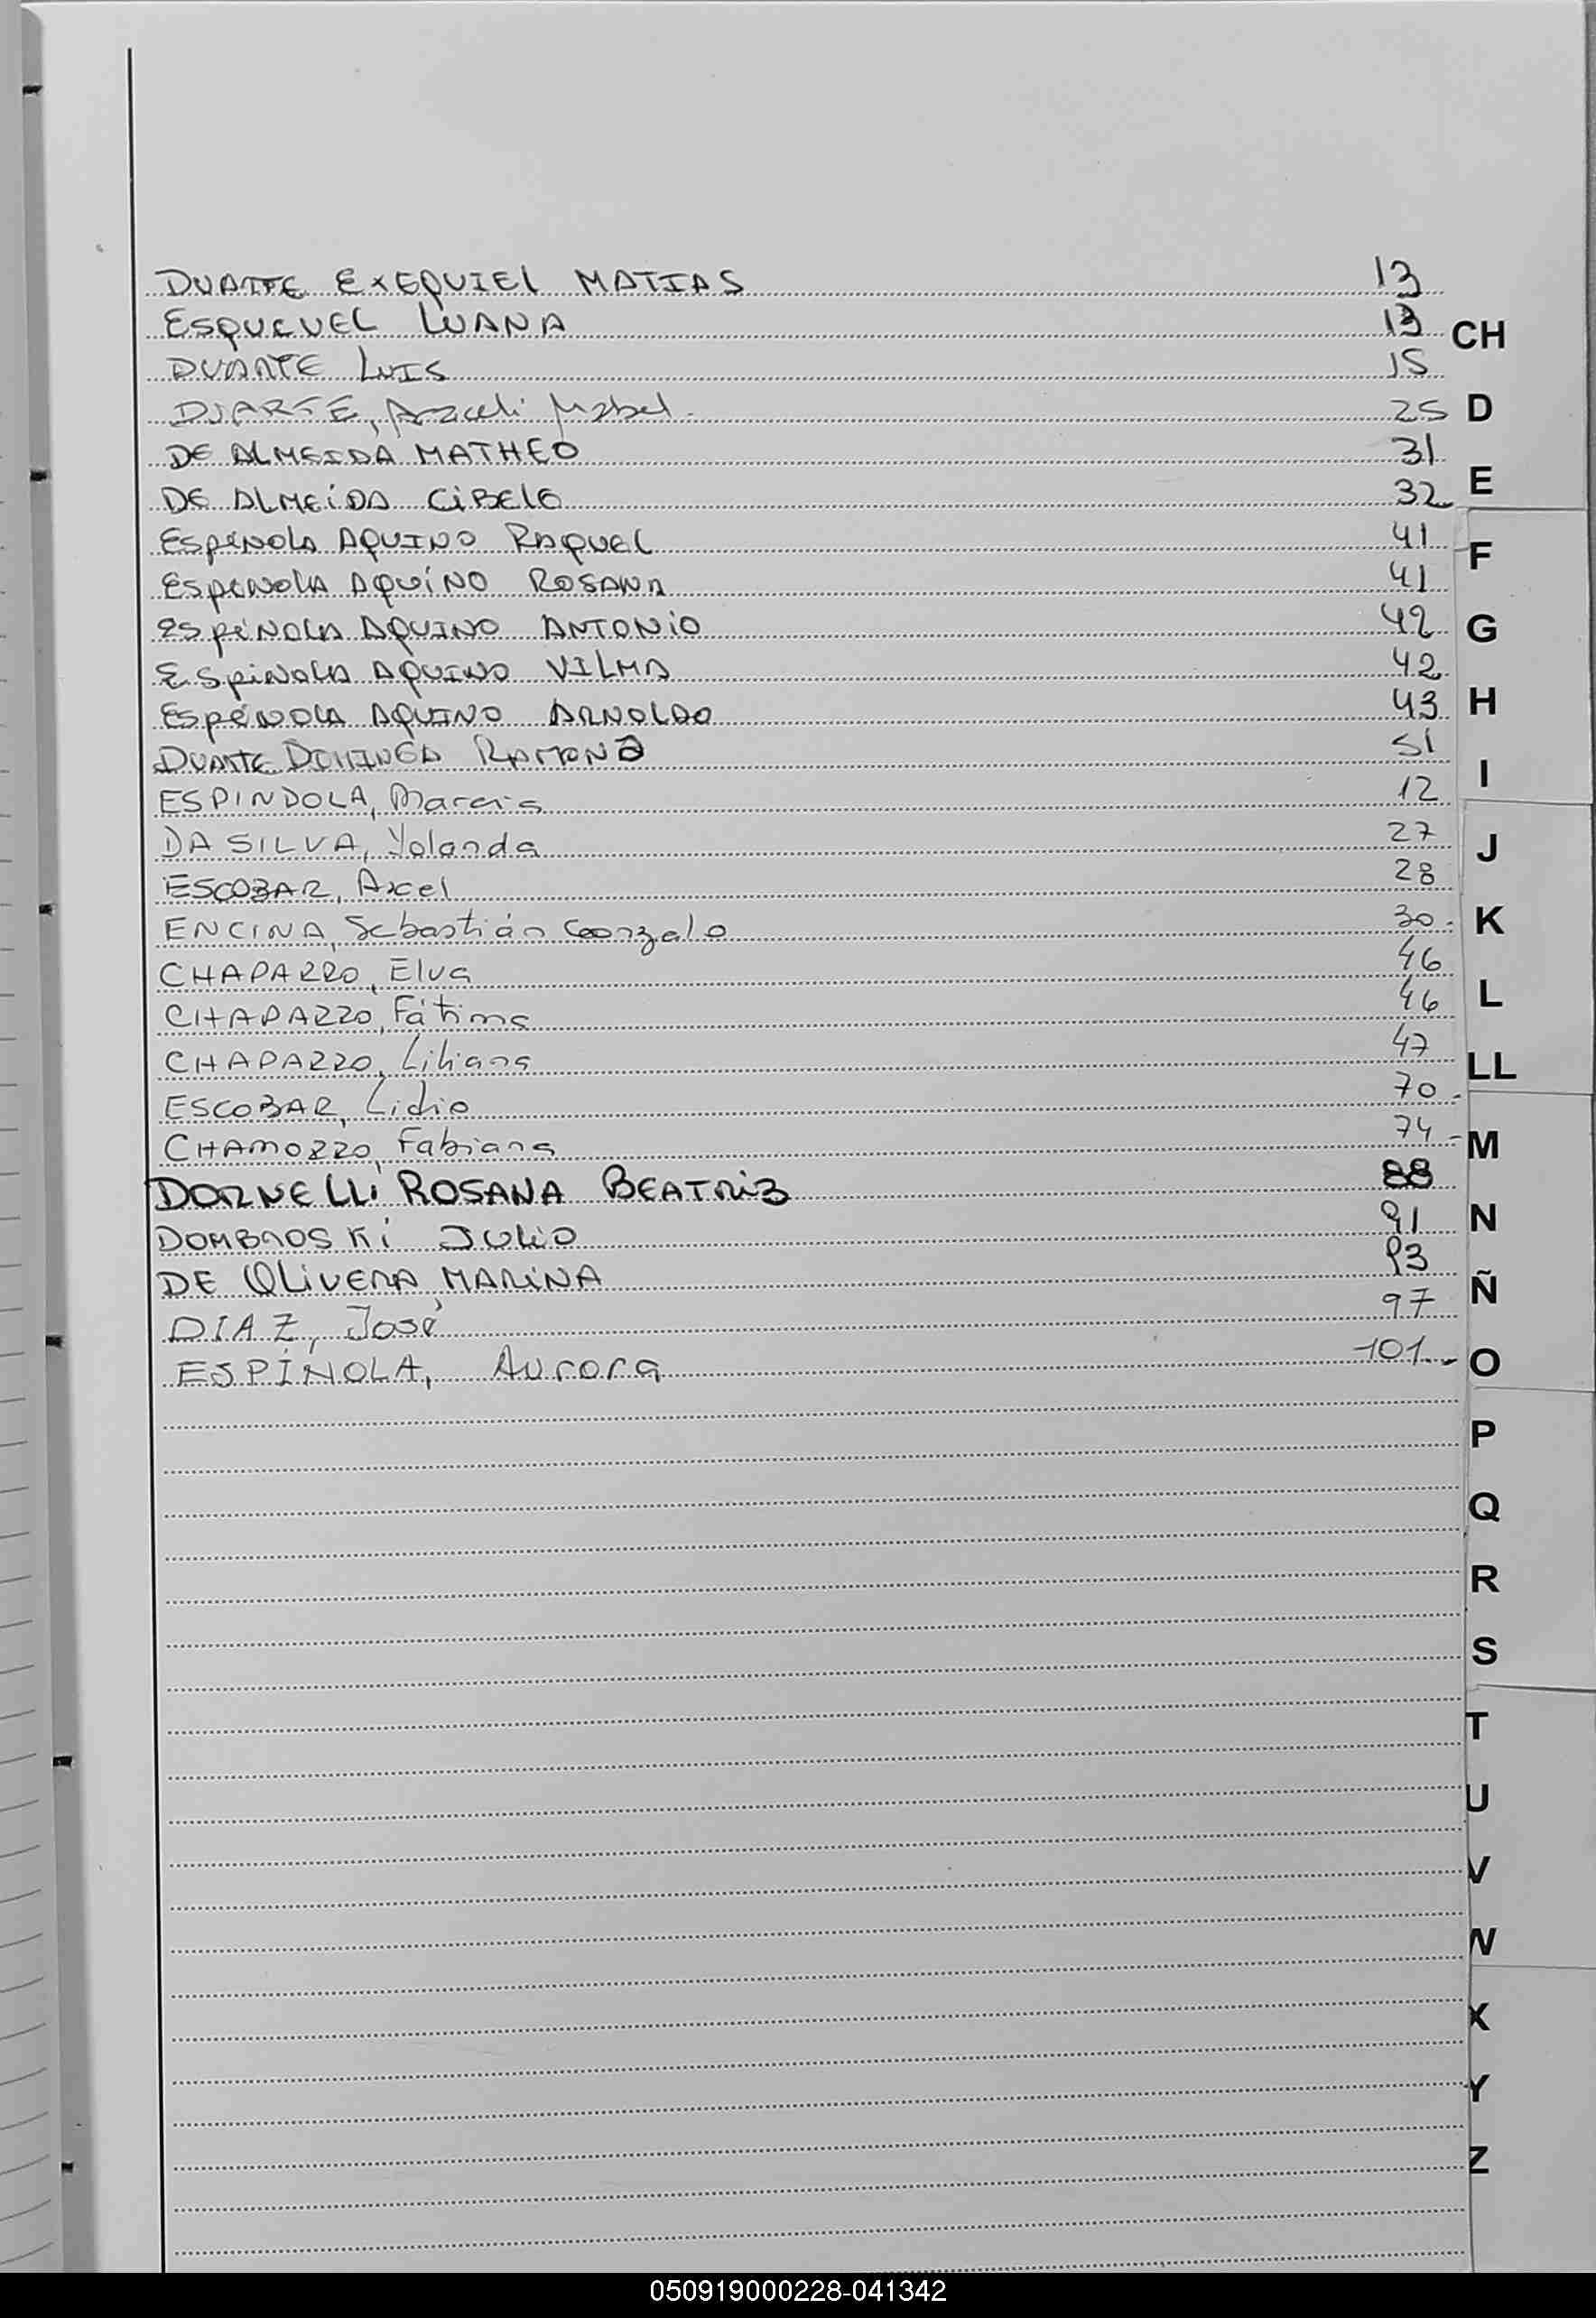 DUARTE EXEQUIEL MATIAS 13
ESQUIVEL LUANA 13 CH
DUARTE LUIS 15
DUARTE, Araceli Mabel. 25 D
DE ALMEIDA MATHEO 31
DE ALMEIDA CIBELE 32 E
ESPINOLA AQUINO RAQUEL 41
F
ESPINOLA AQUINO ROSANA 41
ESPINOLA AQUINO ANTONIO 42 G
ESPINOLA AQUINO VILMA 42
ESPINOLA AQUINO ARNOLDO 43 H
DUARTE DOMINGA RAMONA 51
I
ESPINDOLA, Marcis 12
DA SILVA, Yolanda 27 J
ESCOBAR, Axel 28
ENCINA, Sebastián Gonzalo 30 K
CHAPARRO, Elva 46
CHAPARRO, Fátima 46 L
CHAPARRO, Liliana 47
LL
ESCOBAR, Lidio 70
CHAMORRO, Fabiana 74 M
DORNELLI ROSANA BEATRIZ 88
DOMBROSKI JULIO 91 N
DE OLIVERA MARINA 93
Ñ
DIAZ, José 97
ESPÍNOLA, Aurora 101 O
P
Q
R
S
T
U
V
W
X
Y
Z
050919000228-041342